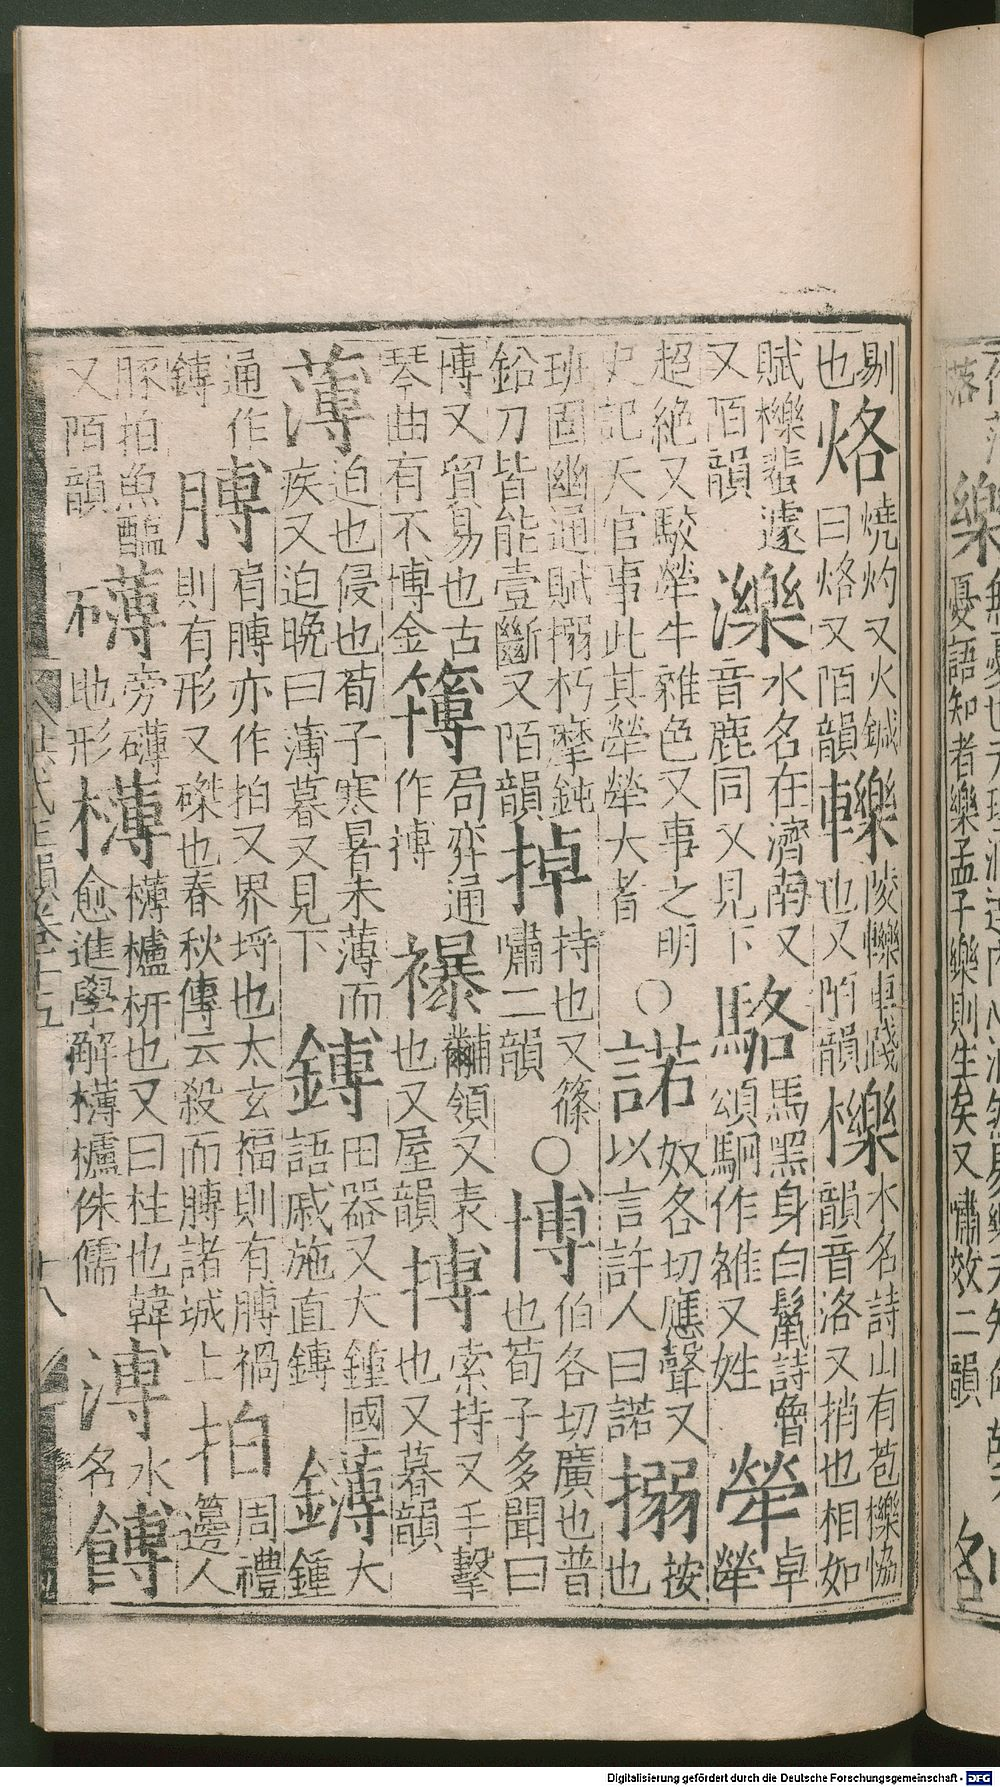 剔
也烙燒灼又火鍼
曰烙又陌韻轢陵轢車踐
也又陌韻櫟木名詩山有苞櫟恊
韻音洛又捎也相如
賦櫟蜚遽
又陌韻濼水名在濟南又
音鹿同又見下駱馬黑身白鬛詩魯
頌駉作雒又姓犖卓
犖
超絶又駁犖牛雜色又事之明
史記天官事此其犖犖大者〇諾奴各切應聲又
以言許人曰諾搦按
也
班固幽通賦搦朽摩鈍
鉛刀皆能壹斷又陌韻掉持也又篠
嘯二韻〇博伯各切廣也普
也荀子多聞曰
博又貿易也古
琴曲有不博金簙局弈通
作博襮黼領又表
也又屋韻搏索持又手擊
也又暮韻
薄迫也侵也荀子寒暑未薄而
疾又迫晚曰薄暮又見下鎛田器又大鍾國
語戚施直鎛鑮大
鍾
通作
鎛膊肩膊亦作拍又界埒也太玄福則有膊禍
則有形又磔也春秋傳云殺而膊諸城上拍周禮
籩人
豚拍魚醢
又陌韻礡旁礡
地形欂欂櫨枅也又曰柱也韓
愈進學解欂櫨侏儒溥水
名餺
洪武正韻卷十五
十八
Digitalisierung gefördert durch die Deutsche Forschungsgemeinschaft - DFG